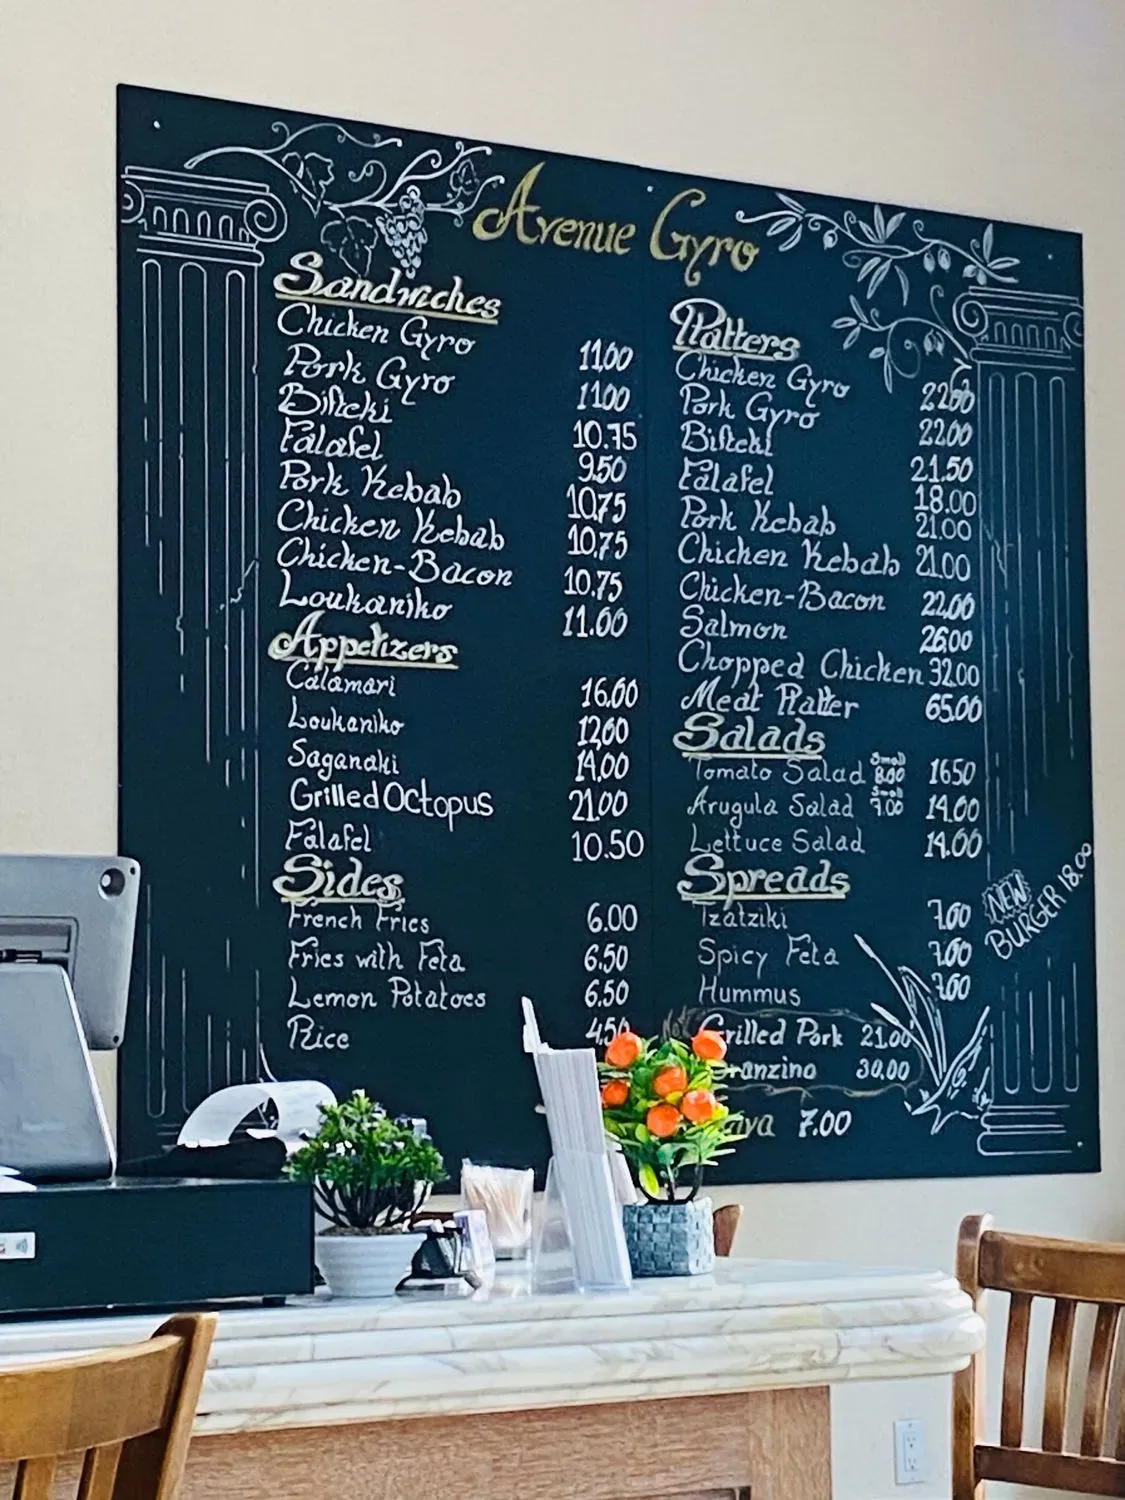 Avenue Gyro
Sandwiches
Chicken Gyro 11.00
Pork Gyro 11.00
Bifteki 10.75
Falafel 9.50
Pork Kebab 10.75
Chicken Kebab 10.75
Chicken-Bacon 10.75
Loukaniko 11.00
Appetizers
Calamari 16.00
Loukaniko 12.00
Saganaki 14.00
Grilled Octopus 21.00
Falafel 10.50
Sides
French Fries 6.00
Fries with Feta 6.50
Lemon Potatoes 6.50
Rice 4.50
Platters
Chicken Gyro 22.00
Pork Gyro 22.00
Bifteki 21.50
Falafel 18.00
Pork Kebab 21.00
Chicken Kebab 21.00
Chicken-Bacon 22.00
Salmon 26.00
Chopped Chicken 32.00
Meat Platter 65.00
Salads
Tomato Salad Small 8.00 16.50
Arugula Salad Small 7.00 14.00
Lettuce Salad 14.00
Spreads
Tzatziki 7.00
Spicy Feta 7.00
Hummus 7.00
Grilled Pork 21.00
ranzino 30.00
ava 7.00
NEW
BURGER 18.00